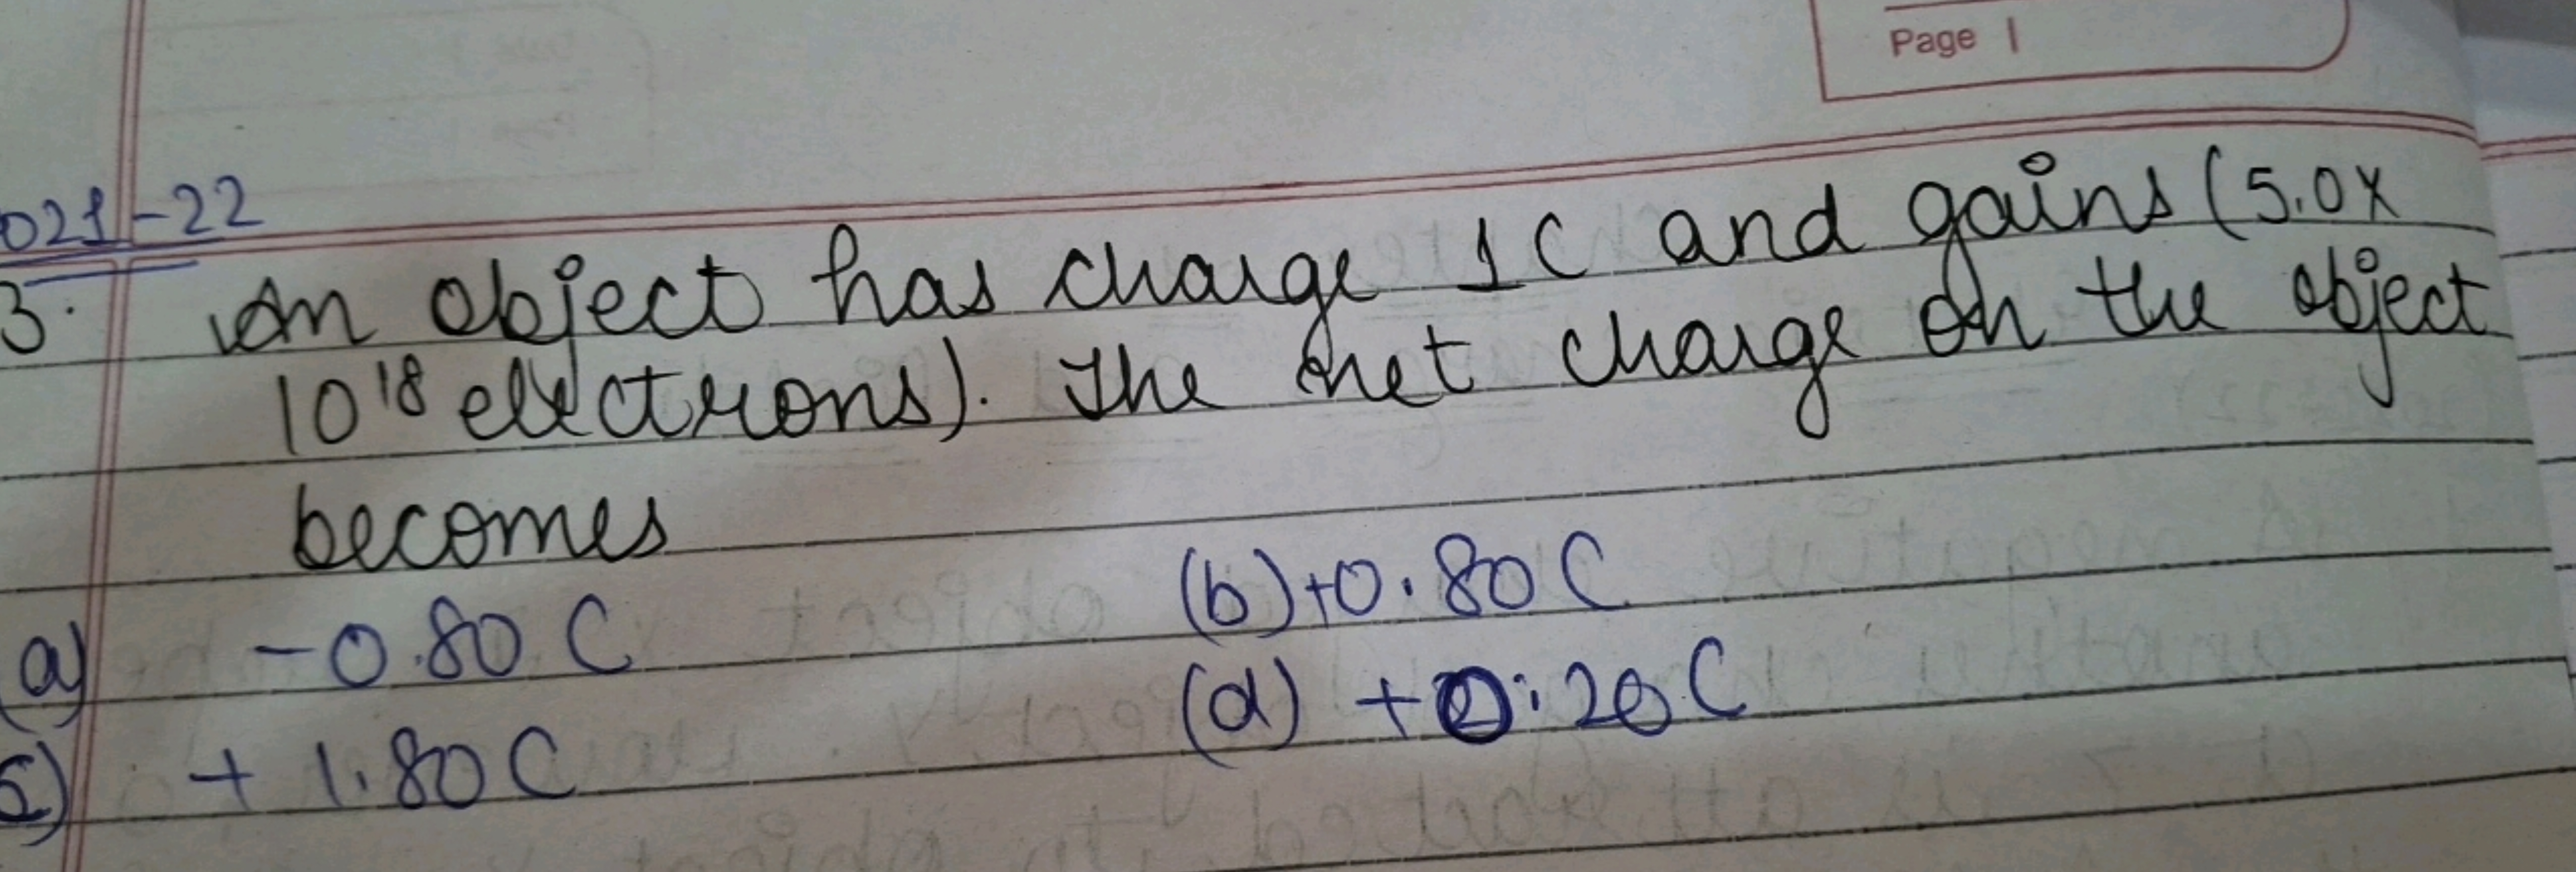 Page 1
021-22
3. An object has charge 1 C and gains (5.0 x
10¹⁸ electrons). The net charge on the object
becomes
a) - 0.80 C (b) +0.80 C
c) + 1.80 C (d) + 0.20 C